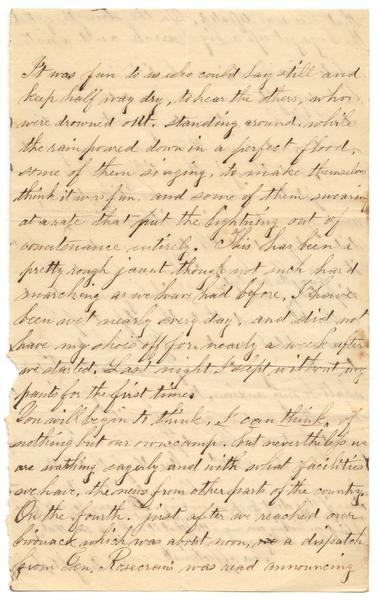 It was fun to us who could lay still and
keep half way dry, to hear the others, who
were drowned out. standing around, while
the rain poured down in a perfect flood,
some of them singing, to make themselves
think it was fun, and some of them swearing
at a rate that put the lightning out of
countenance entirely. This has been a
pretty rough jaunt though not such hard
marching as we have had before, I have
been wet nearly every day, and did not
have my shoes off for nearly a week after
we started. Last night I slept without my
pants for the first time.
You will begin to think, I can think of
nothing but our own camp. but nevertheless we
are watching eagerly and with what facilities
we have, the news from other parts of the country.
On the fourth. just after we reached our
bivouack which was about noon, a dispatch
from Gen. Rosecrans was read announcing